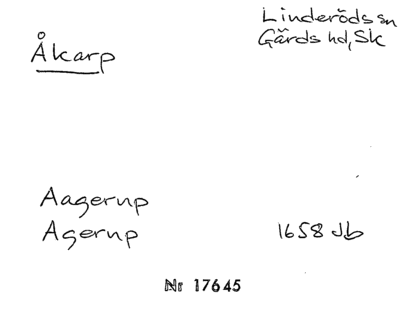 Linderöds sn
Gärds hd, Sk
Åkarp
Aagerup
Agerup 1658 Jb
Nr 17645